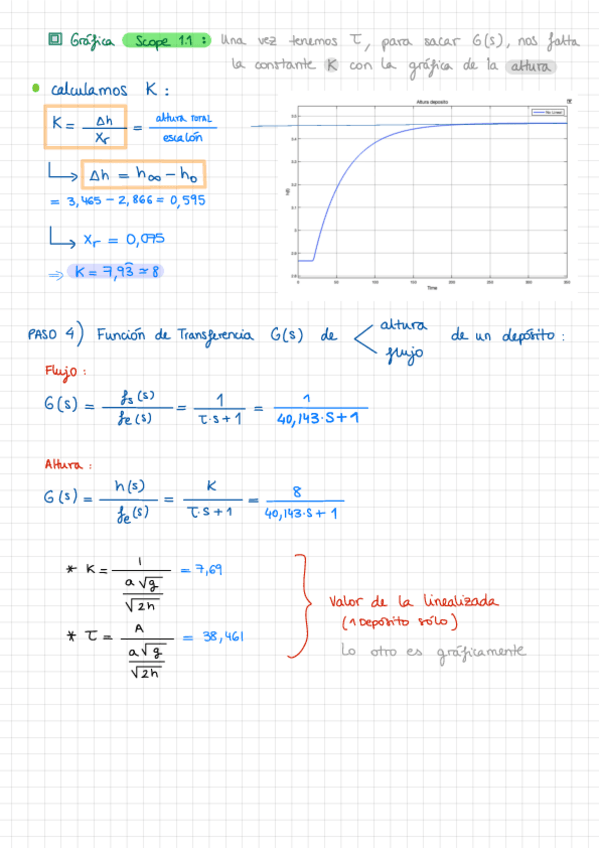 Gráfica Scope 1.1 : Una vez tenemos τ, para sacar G(s), nos falta
la constante K con la gráfica de la altura
calculamos K :
K = Δh / Xr = altura TOTAL / escalón
Δh = h∞ − h0
= 3,465 − 2,866 = 0,595
Xr = 0,075
⇒ K = 7,93 ≃ 8
Altura deposito
Time
0 50 100
PASO 4) Función de Transferencia G(s) de < altura flujo de un depósito :
Flujo :
G(s) = fs(s) / fe(s) = 1 / τ·s + 1 = 1 / 40,143·s + 1
Altura :
G(s) = h(s) / fe(s) = K / τ·s + 1 = 8 / 40,143·s + 1
* K = 1 / a√g / √2h = 7,69
* τ = A / a√g / √2h = 38,461
Valor de la linealizada
(1 Depósito sólo)
Lo otro es gráficamente